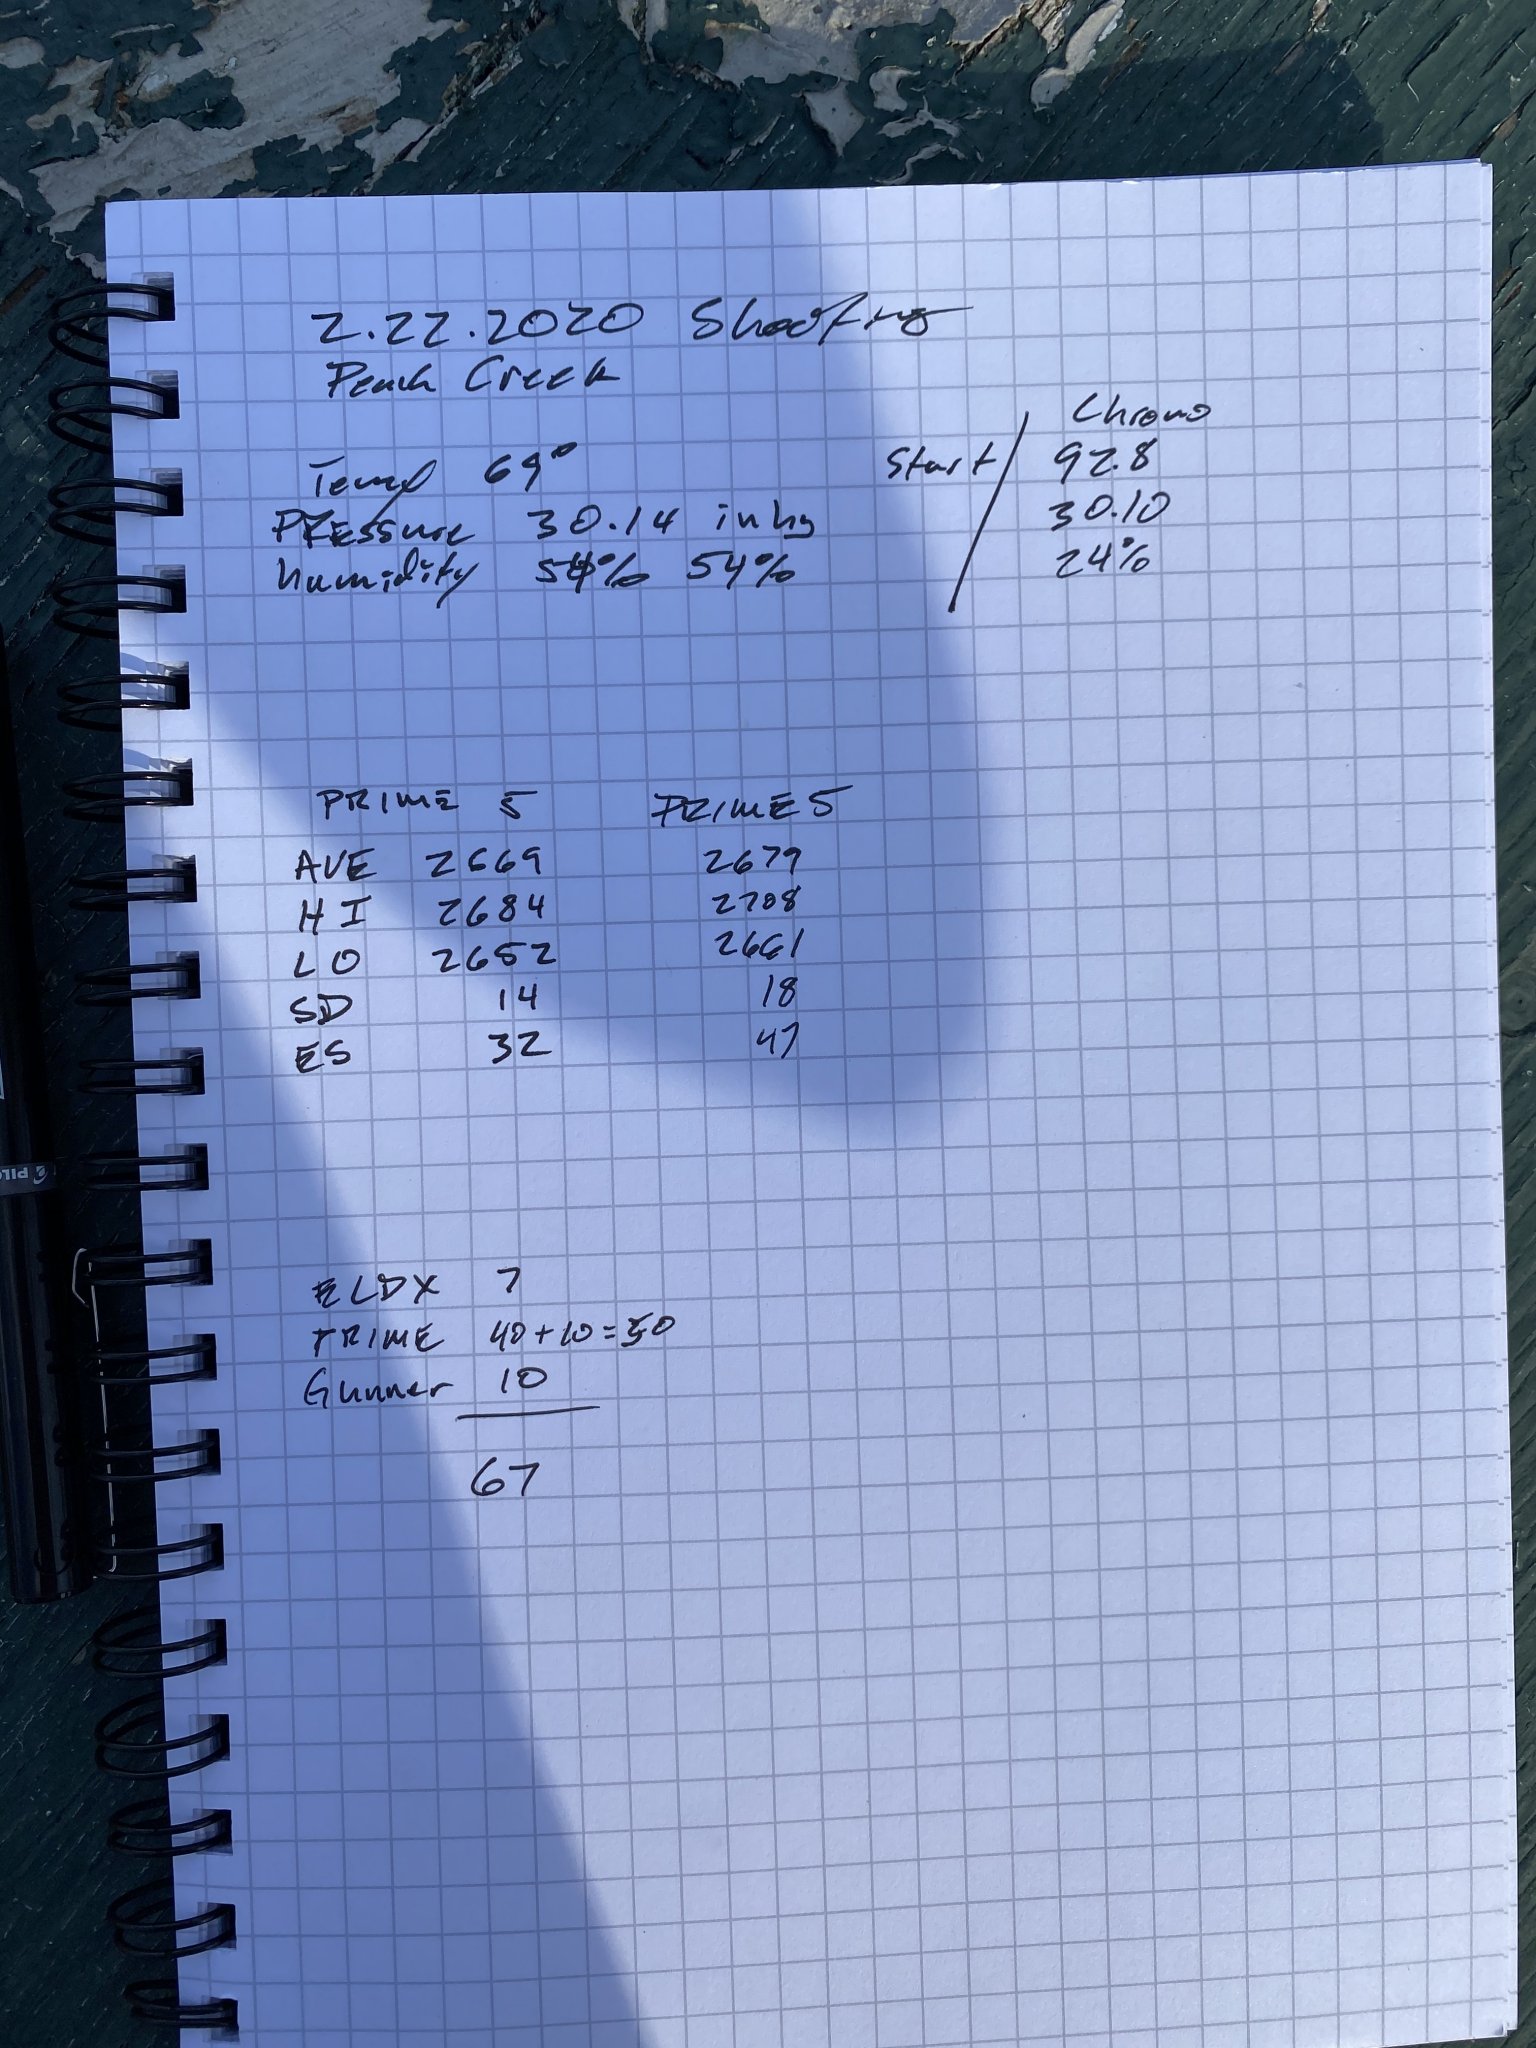 2.22.2020 Shooting
Peach Creek
Chrono
Temp 69° Start 92.8
Pressure 30.14 inhg 30.10
humidity 54% 24%
PRIME 5 PRIME 5
AVE 2669 2679
HI 2684 2708
LO 2652 2661
SD 14 18
ES 32 47
ELDX 7
PRIME 40+10=50
Gunner 10
67